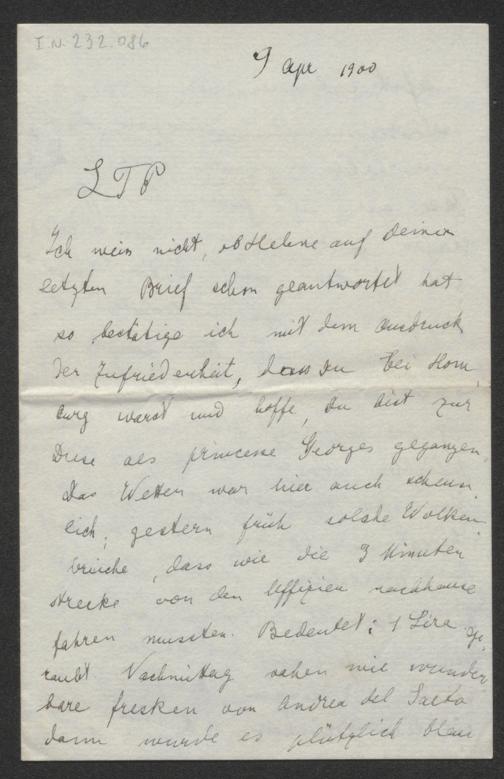 I.N. 232.086
9 Apr 1900
LTP
Ich weis nicht, ob Helene auf Deinen
letzten Brief schon geantwortet hat
so bestätige ich mit dem Ausdruck
der Zufriedenheit, dass du bei Hom
burg warst und hoffe, du bist zur
Duse als princesse Georges gegangen.
Das Wetter war hier auch scheus
lich; gestern früh solche Wolken
brüche, dass wir die 3 Minuten
strecke von den Uffizien nachhause
fahren mussten. Bedeutet: 1 Lire ge
raubt Nachmittag sahen wir wunder
bare fresken von Andrea del Sarto
dann wurde es plötzlich blau